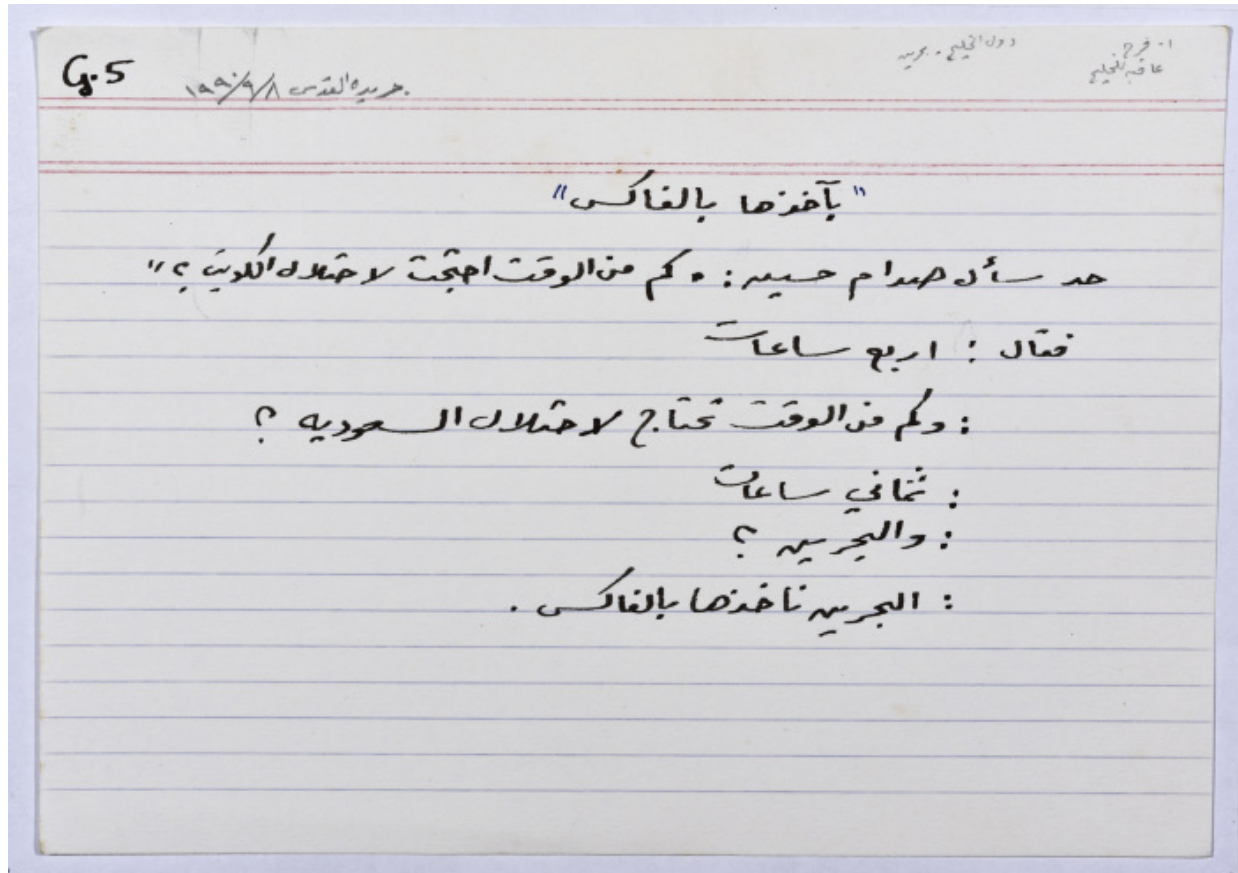 G.5
دول الخليج - بحرين
جريدة القدس ١٩٩٠/٩/٨
"بآخذها بالفاكس"
حد سأل صدام حسين : "كم من الوقت احتجت لاحتلال الكويت ؟"
فقال : اربع ساعات
: وكم من الوقت تحتاج لاحتلال السعودية ؟
: ثماني ساعات
: والبحرين ؟
: البحرين ناخذها بالفاكس .